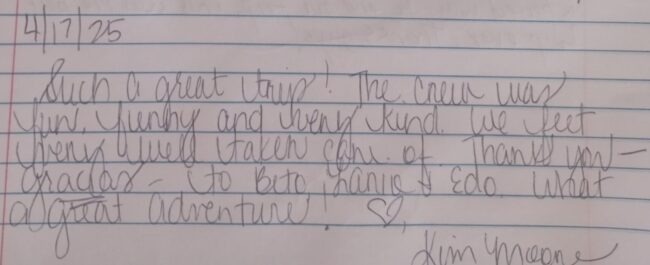 4/17/25
Such a great trip! The crew was
fun, funny and very kind. We feel
very well taken care of. Thank you -
Gracias - to Beto, & Edo. What
a great adventure! ♡,
Kim